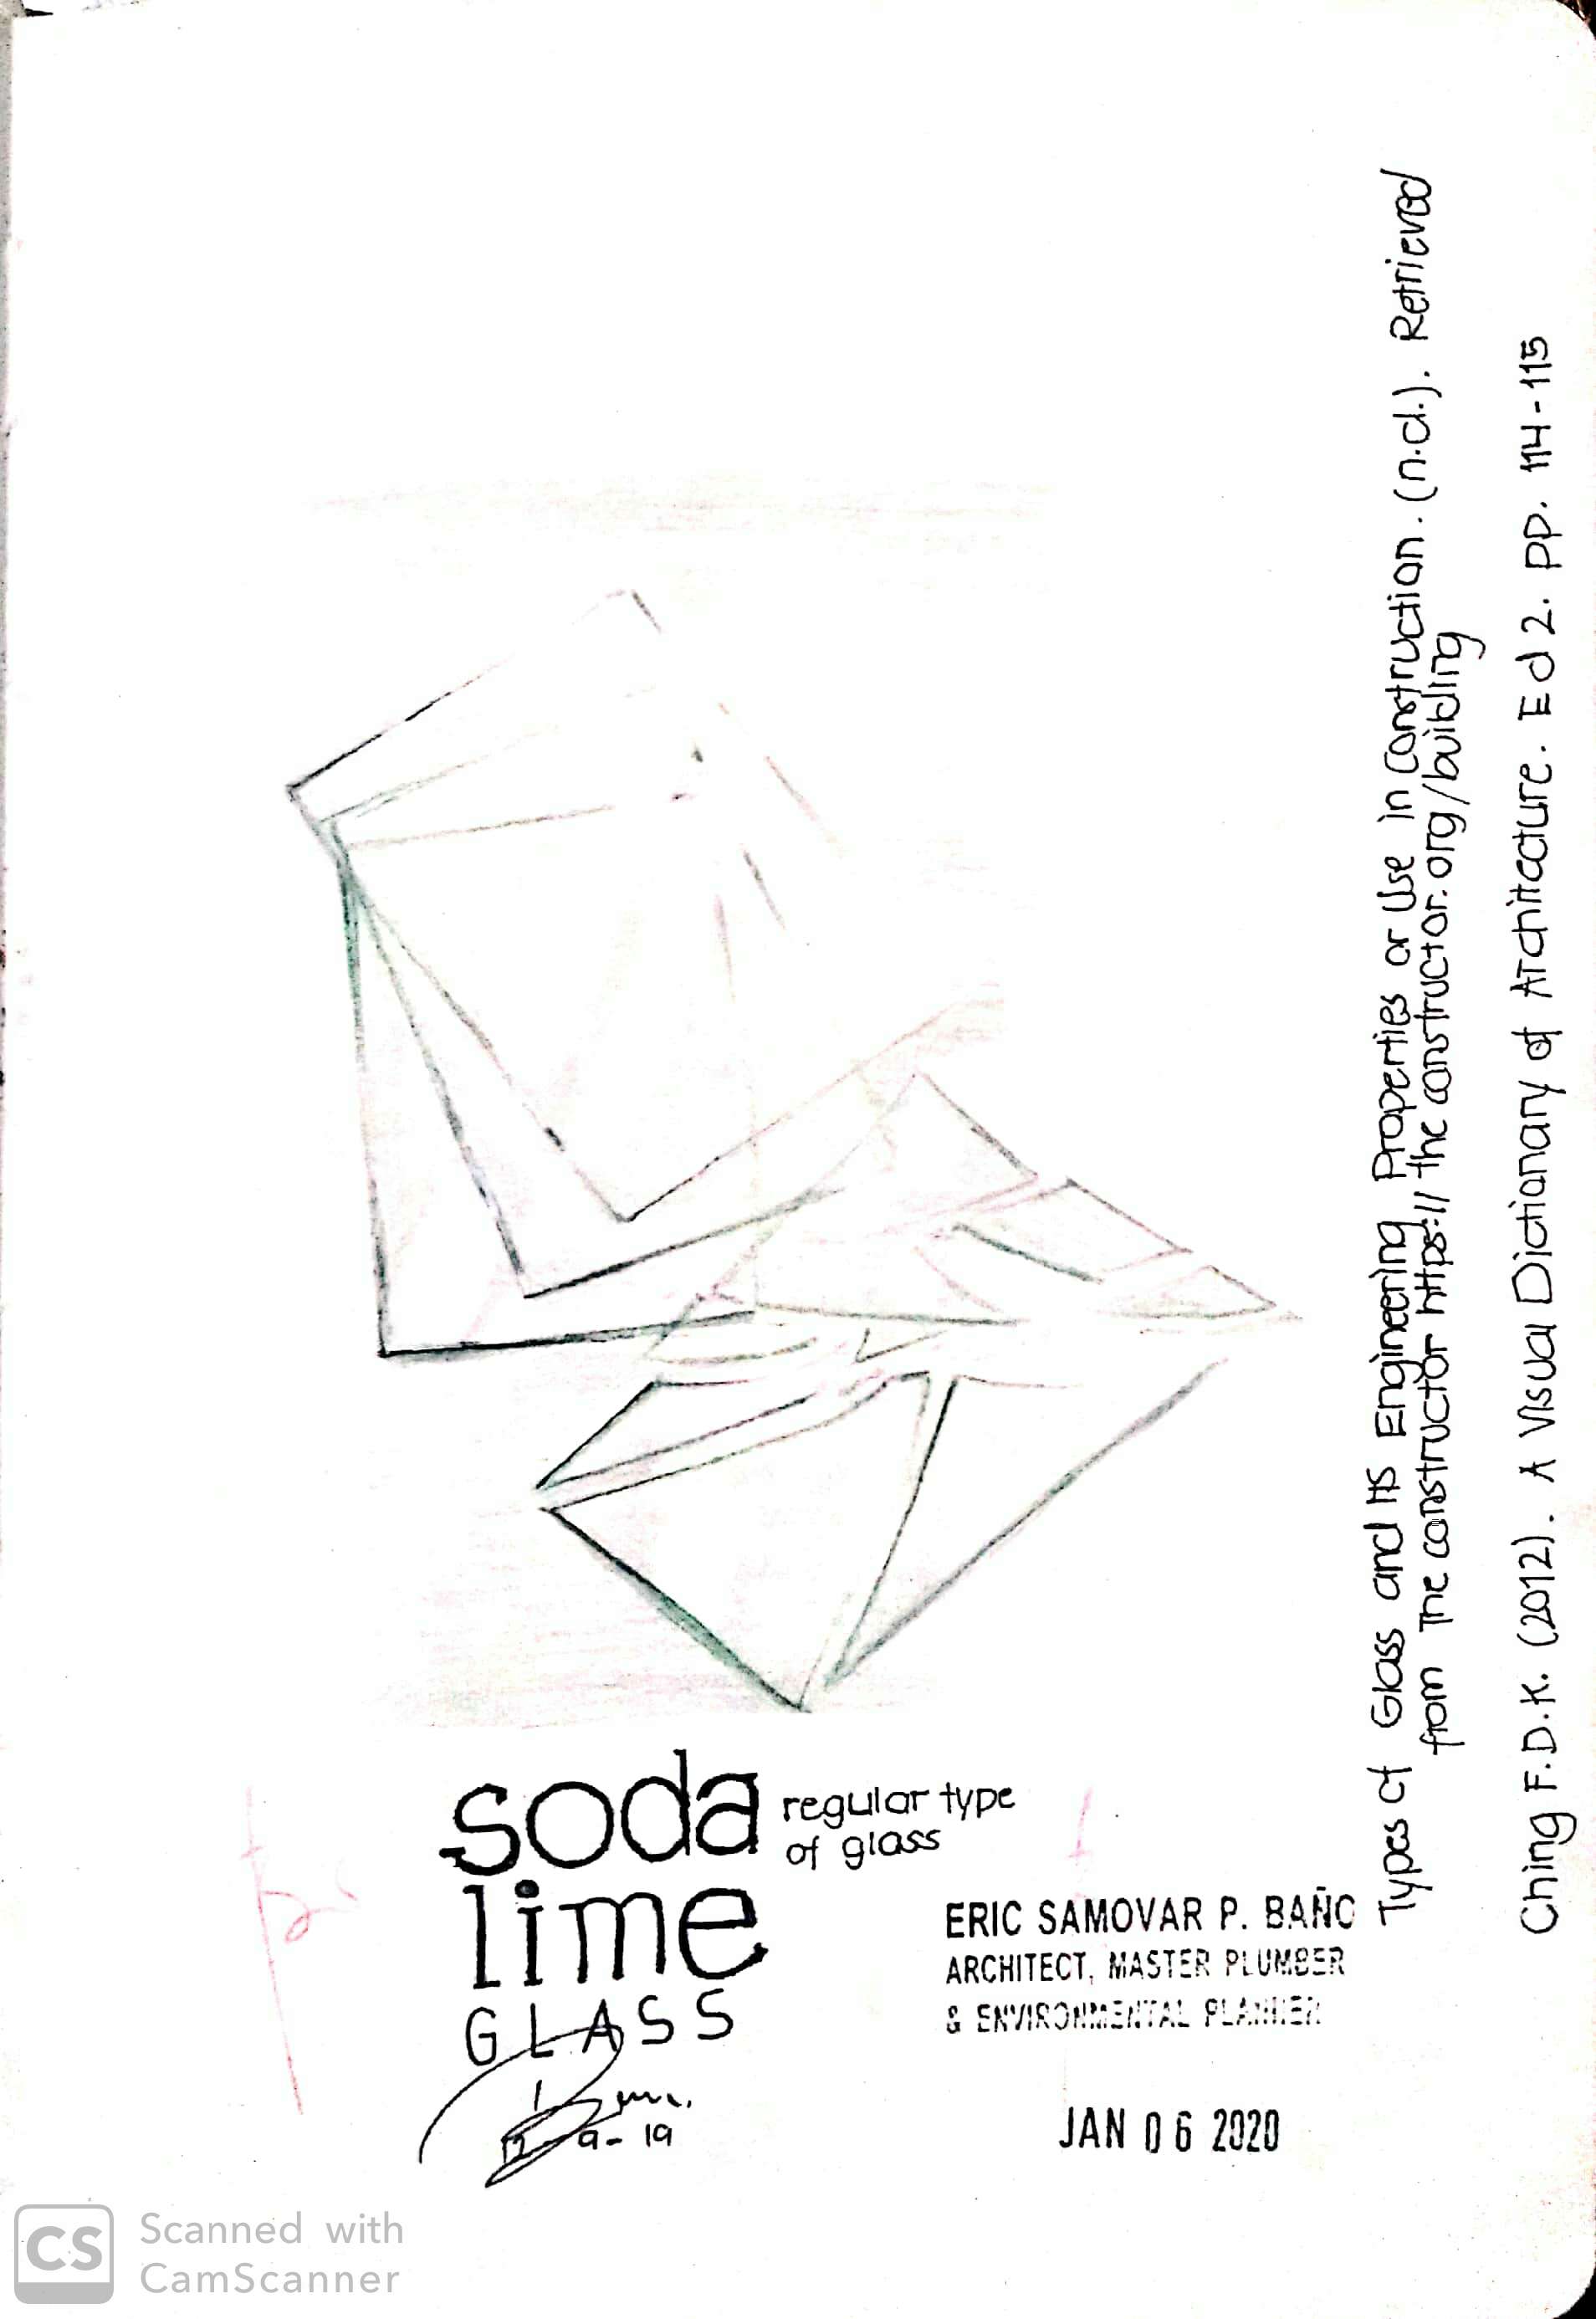 soda
lime
GLASS
regular type
of glass
12-9-19
ERIC SAMOVAR P. BAÑO
ARCHITECT, MASTER PLUMBER
& ENVIRONMENTAL PLANNER
JAN 06 2020
Types of Glass and its Engineering Properties or Use in Construction. (n.d.). Retrieved
from The constructor https://theconstructor.org/building
Ching F.D.K. (2012). A Visual Dictionary of Architecture. Ed 2. pp. 114-115
CS
Scanned with
CamScanner